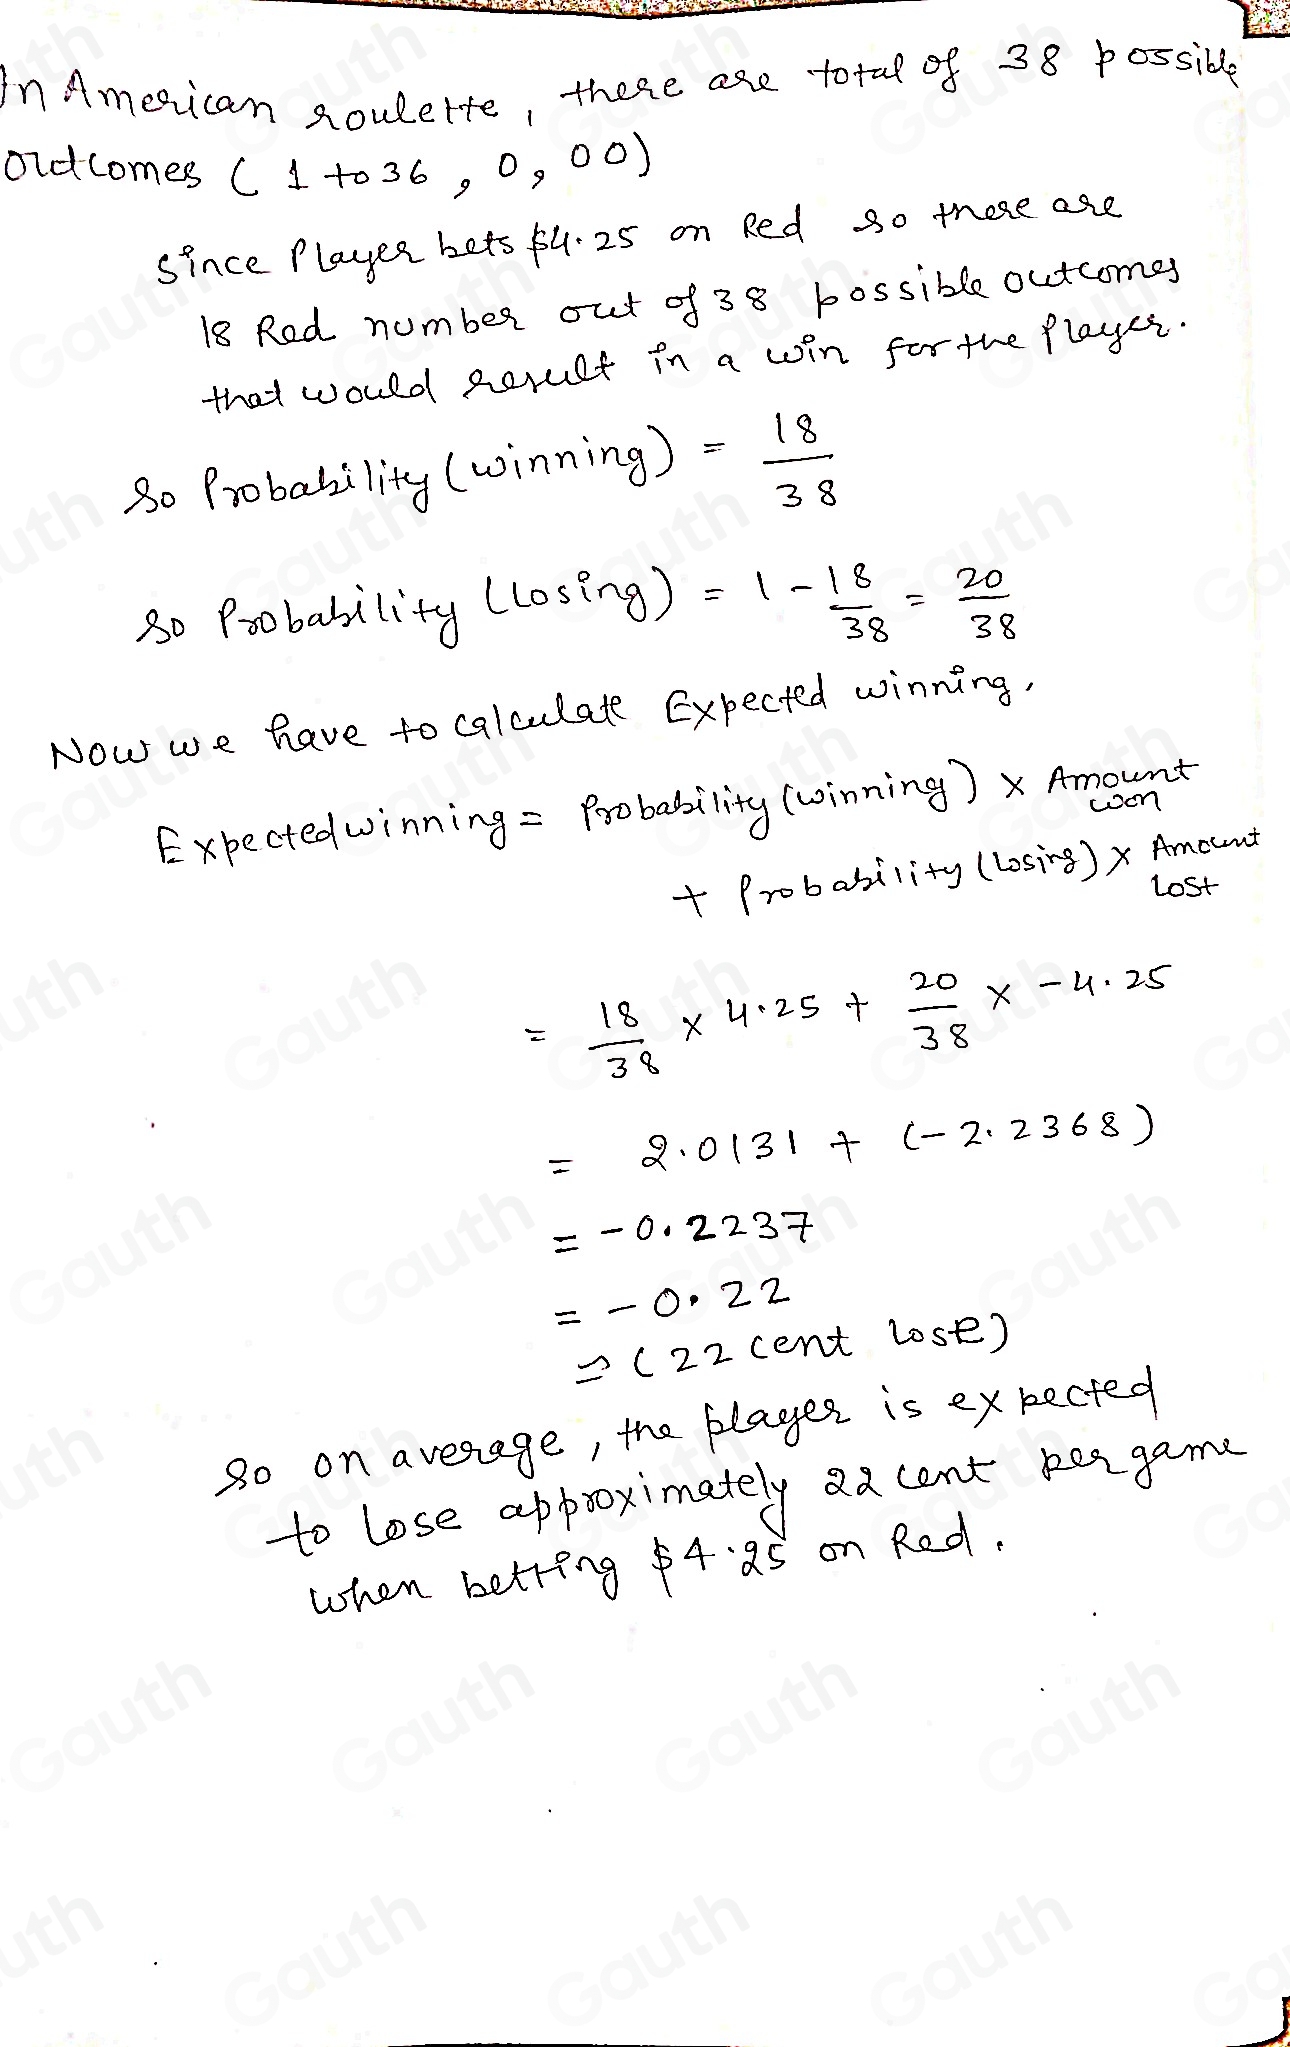 In American roulette, there are total of 38 possible
outcomes ( 1 to 36 , 0 , 00)
since Player bets $4.25 on Red so there are
18 Red number out of 38 possible outcomes
that would result in a win for the Player.
So Probability (winning) = 18/38
So Probability (Losing) = 1 - 18/38 = 20/38
Now we have to calculate Expected winning,
Expected winning = Probability (winning) × Amount won
+ Probability (Losing) × Amount Lost
= 18/38 × 4.25 + 20/38 × -4.25
= 2.0131 + (-2.2368)
= -0.2237
= -0.22
≈ (22 cent lose)
So on average, the player is expected
to lose approximately 22 cent per game
when betting $4.25 on Red.